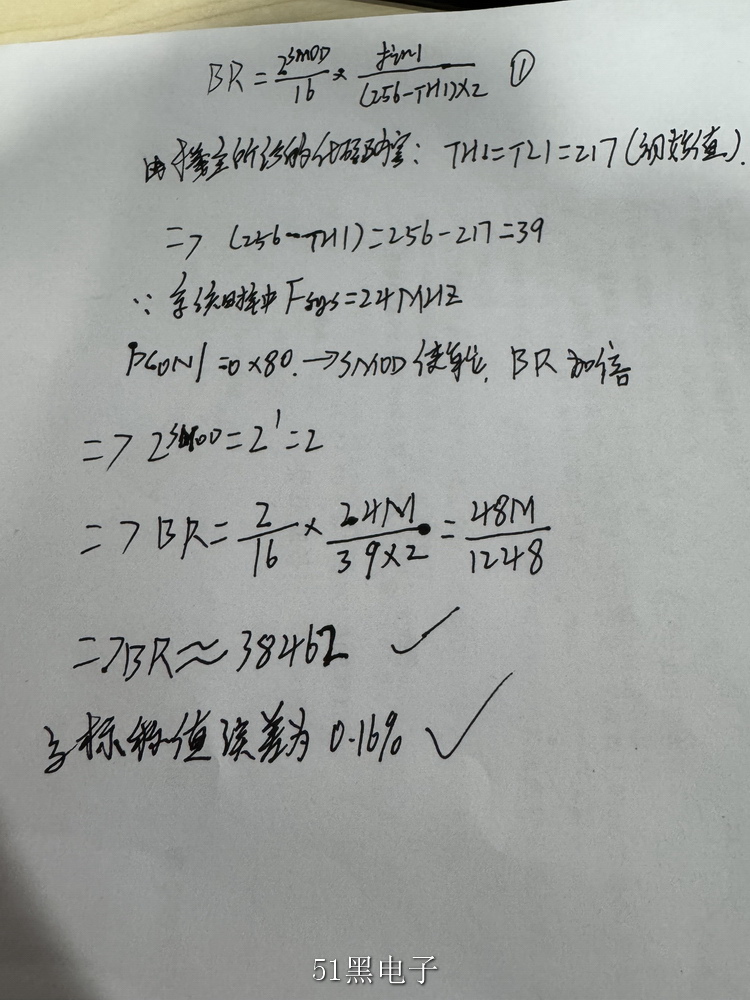 BR = 2^SMOD/16 × ftim1/((256-TH1)×2) ①
由楼主所给的代码可知: TH1=TL1=217(初始值).
=> (256-TH1)=256-217=39
∵ 系统时钟 Fsys=24MHZ
PCON1=0x80. →SMOD使能, BR加倍
=> 2^SMOD=2^1=2
=> BR= 2/16 × 24M/(39×2) = 48M/1248
=>BR≈38462 ✓
与标称值误差为 0.16% ✓
51黑电子